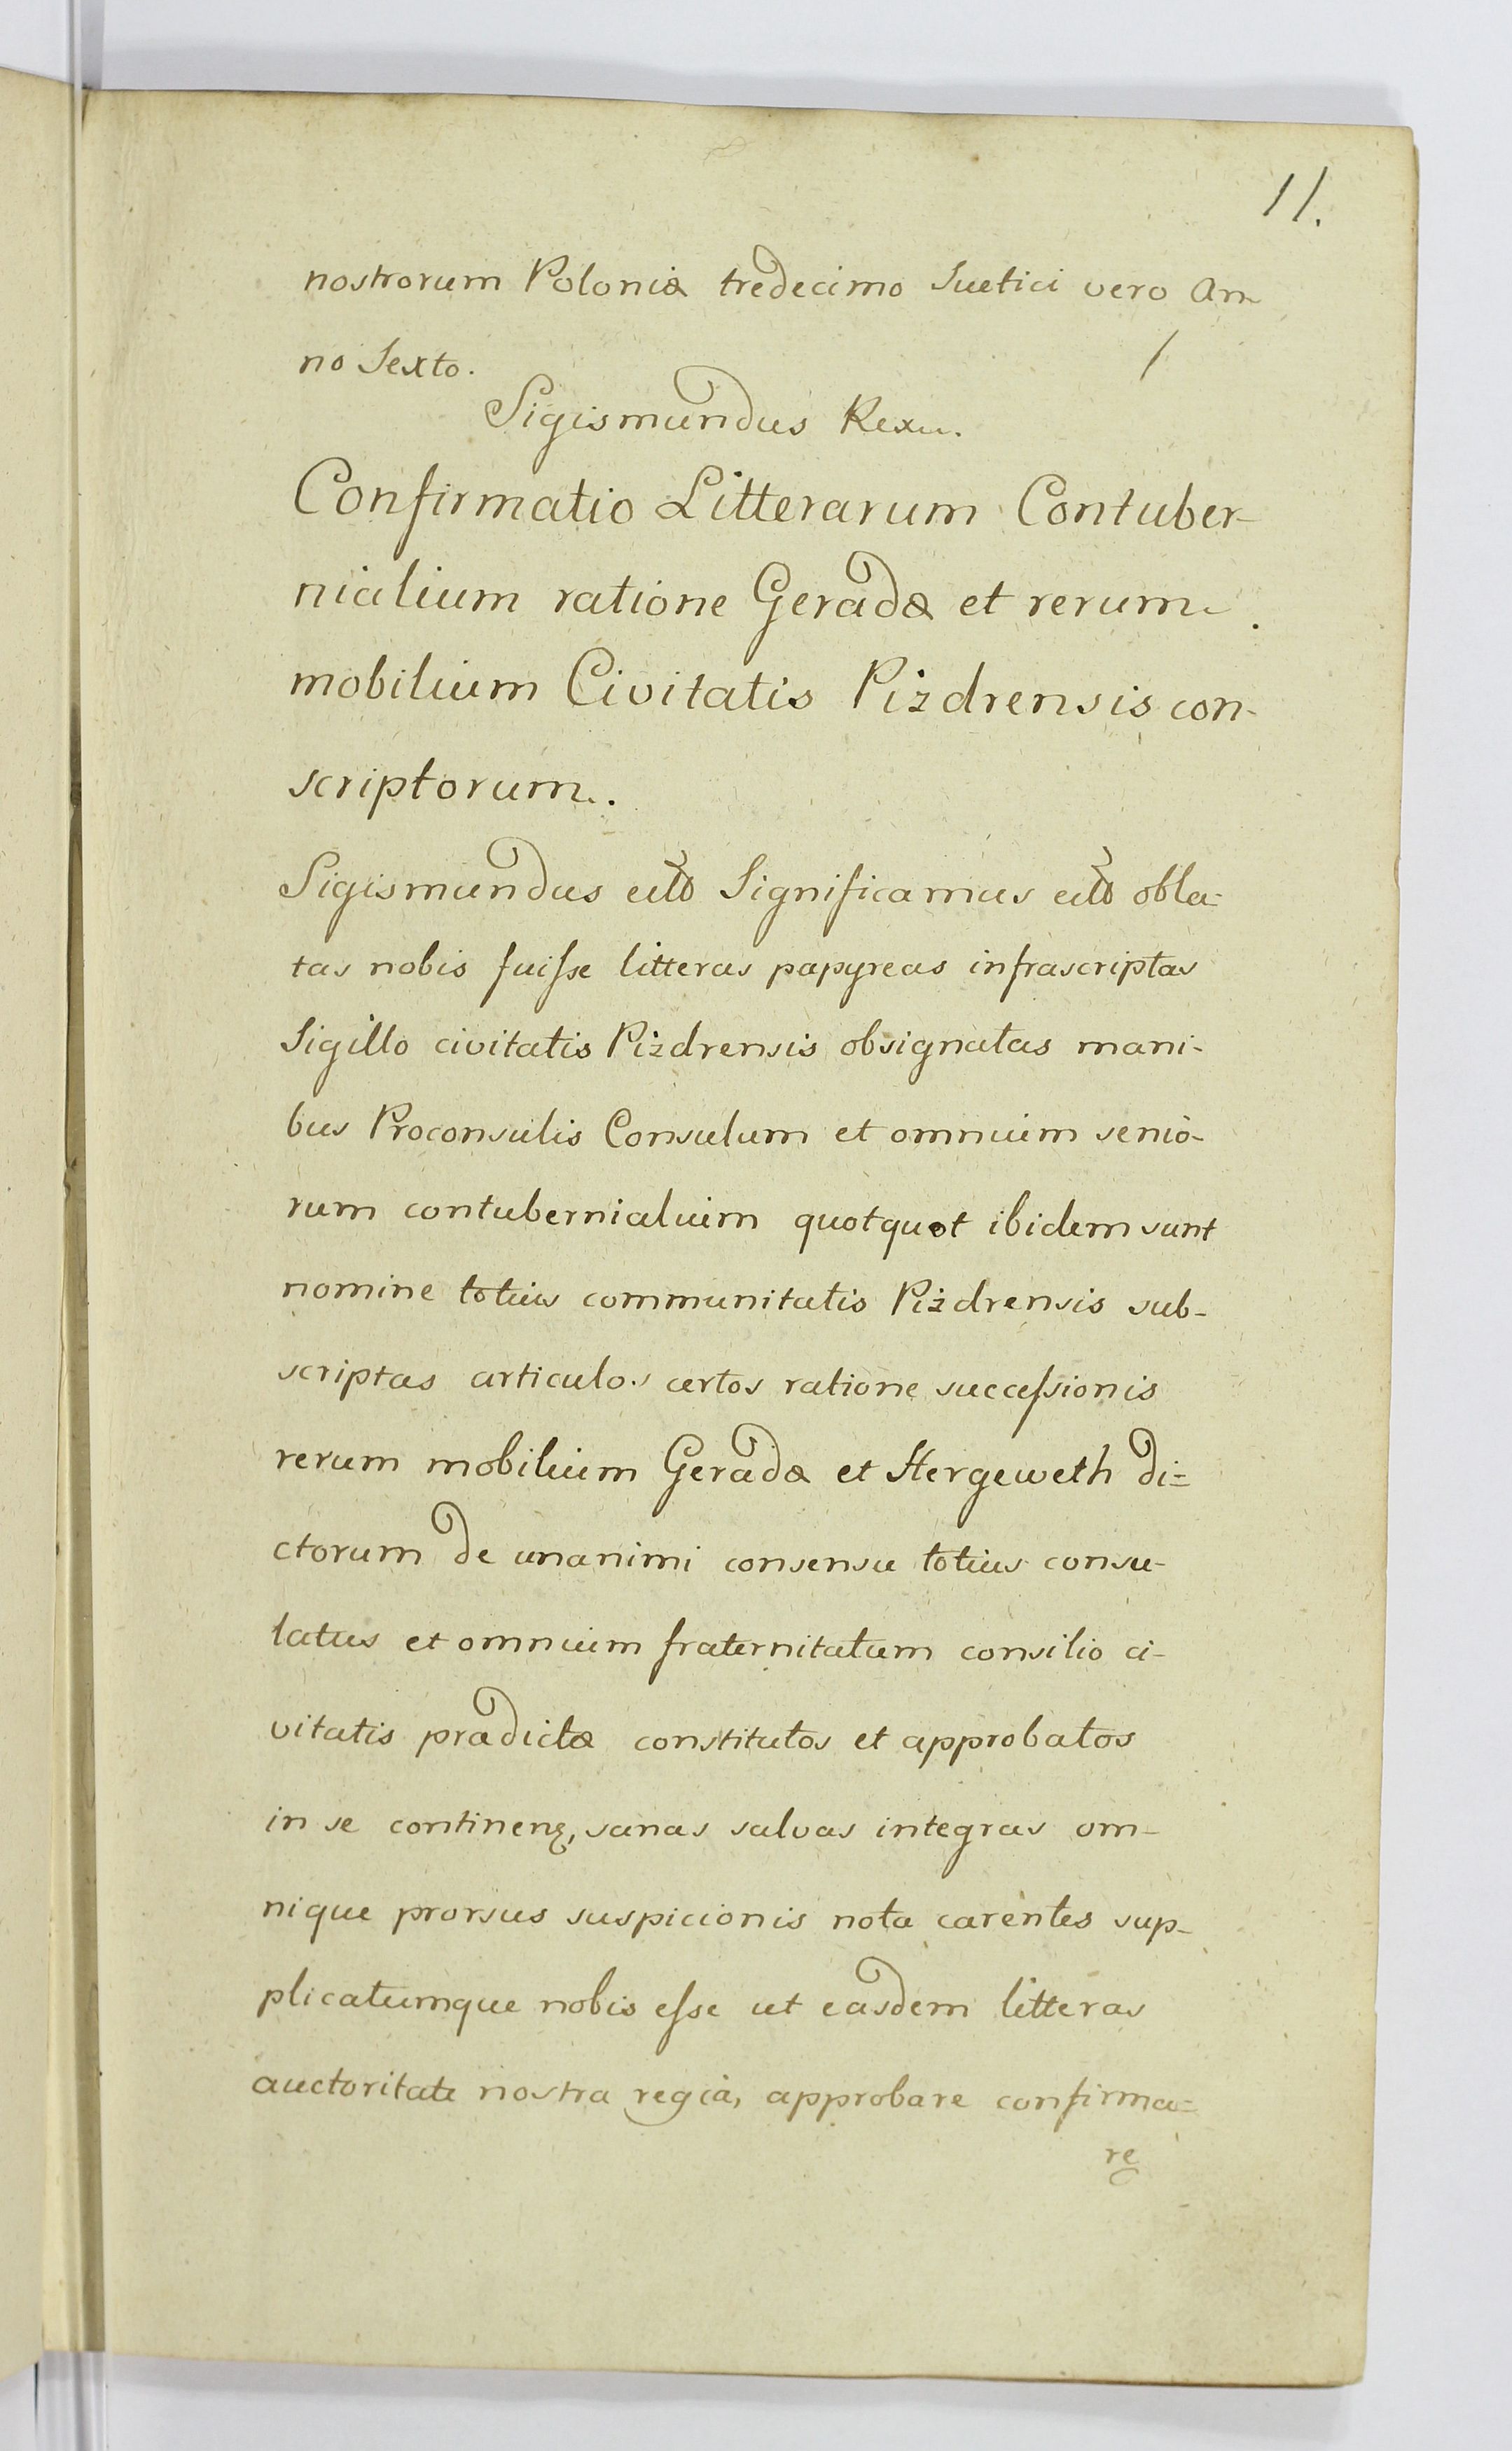 11.
nostrorum Poloniæ tredecimo Suetici vero An
no Sexto.
Sigismundus Rex.
Confirmatio Litterarum Contuber-
nialium ratione Geradæ et rerum
mobilium Civitatis Pizdrensis con-
scriptorum.
Sigismundus Significamus obla-
tas nobis fuiſse litteras papyreas infrascriptas
Sigillo civitatis Pizdrensis obsignatas mani-
bus Proconsulis Consulum et omnium senio-
rum contubernialium quotquot ibidem sunt
nomine totius communitatis Pizdrensis sub-
scriptas articulos certos ratione succeſsionis
rerum mobilium Geradæ et Hergeweth di=
ctorum de unanimi consensu totius consu-
latus et omnium fraternitatum consilio ci-
vitatis prædictæ constitutos et approbatos
in se continen, sanas salvas integras om-
nique prorsus suspicionis nota carentes sup-
plicatumque nobis eſse ut easdem litteras
auctoritate nostra regia, approbare confirma=
re